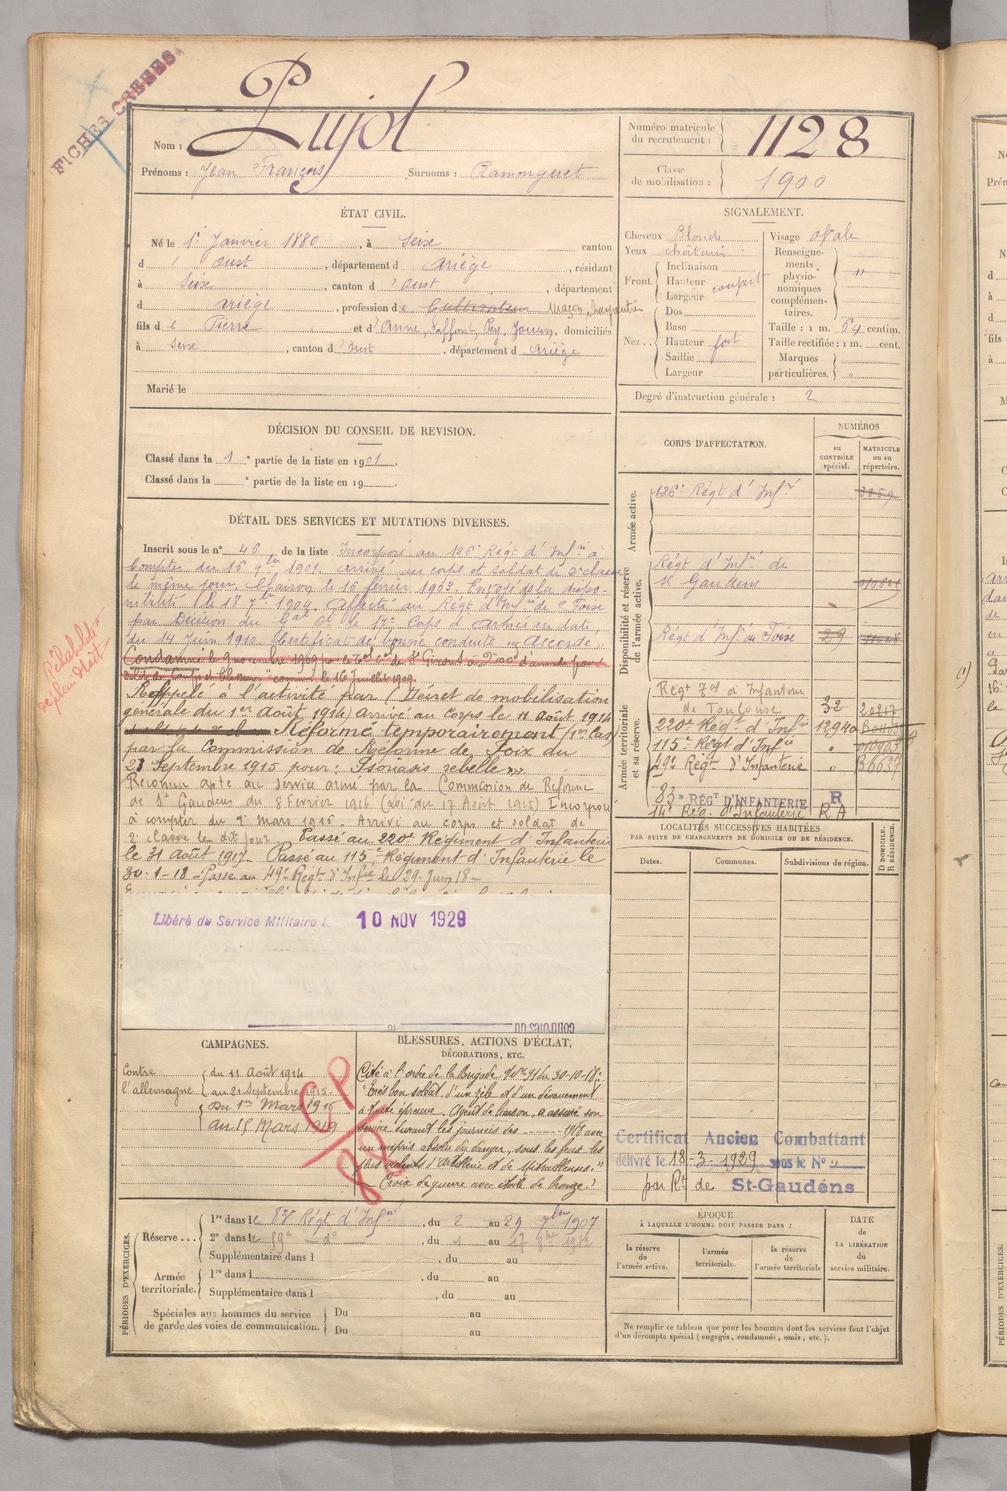 FICHES CRÉÉES
Pujol
Nom :
Prénoms : Jean François Surnoms : Ramonguet
Numéro matricule du recrutement : 1128
Classe de mobilisation : 1900
ÉTAT CIVIL.
Né le 1er Janvier 1880, à Seix canton
d' Oust, département d Ariège, résidant
à Seix, canton d' Oust, département
d Ariège, profession de Cultivateur Maçon, charpentier
fils de Pierre et d' Anne, Saffont, Rey, Jouan, domiciliés
à Seix, canton d' Oust, département d Ariège
Marié le
SIGNALEMENT.
Cheveux Blonds Visage ovale
Yeux châtain
Front. Inclinaison
Hauteur
Largeur
Nez... Dos
Base
Hauteur fort
Saillie
Largeur
Renseignements physionomiques complémentaires. "
Taille : 1 m. 64 centim.
Taille rectifiée : 1 m. cent.
Marques particulières. "
Degré d'instruction générale : 2
DÉCISION DU CONSEIL DE REVISION.
Classé dans la 1e partie de la liste en 1901.
Classé dans la e partie de la liste en 19 .
DÉTAIL DES SERVICES ET MUTATIONS DIVERSES.
Inscrit sous le n° 46 de la liste Incorporé au 126e Régt d' Infie à
compter du 16 9bre 1901. Arrivé au corps et soldat de 2e classe
le même jour. Clairon le 16 février 1903. Envoyé dans la dispo-
nibilité le 18 7bre 1904. Affecté au Régt d'Infie de Foix
par Décision du Gal Ct le 17e Corps d'Armée en date
du 14 Juin 1910. Certificat de bonne conduite "Accordé"
Condamné le 9 novembre 1909 par le de St Girons à d'amende pour
commis le 16 juillet 1909.
Réhabilité de plein droit
Rappelé à l'activité par (Décret de mobilisation
générale du 1er Août 1914) arrivé au corps le 11 Août 1914
Réformé temporairement (1er Cas)
par la Commission de Réforme de Foix du
21 Septembre 1915 pour : Psoriasis rebelle
Reconnu apte au service armé par la Commission de Réforme
de St Gaudens du 8 Février 1916 (Loi du 17 Août 1915) Incorporé
à compter du mars 1916. Arrivé au corps et soldat de
2e classe le dit jour. Passé au 220e Régiment d'Infanterie
le 31 Août 1917. Passé au 115e Régiment d'Infanterie le
30-1-18 - Passé au 49e Régt d'Infie le 29 Juin 18
Libéré du Service Militaire l 10 NOV 1929
CORPS D'AFFECTATION.
NUMÉROS
au CONTRÔLE spécial.
MATRICULE ou au répertoire.
Armée active.
126e Régt d' Infie
Disponibilité et réserve de l'armée active.
Régt d' Infie de
St Gaudens
Régt d' Infie de Foix 29
Armée territoriale et sa réserve.
Régt d' Infanterie
de Toulouse 32 20217
220e Régt d' Infie 12940
115e Régt d' Infie "
49e Régt d'Infanterie "
83e RÉGT D'INFANTERIE R
14e Rég. d'Infanterie R A
LOCALITÉS SUCCESSIVES HABITÉES
PAR SUITE DE CHANGEMENTS DE DOMICILE OU DE RÉSIDENCE.
Dates. Communes. Subdivisions de région. D DOMICILE. R RÉSIDENCE.
CAMPAGNES.
Contre l'allemagne
du 11 Août 1914
au 21 Septembre 1915
du 1er Mars 1916
au 15 Mars 1919
CP
BLESSURES, ACTIONS D'ÉCLAT,
DÉCORATIONS, ETC.
Cité à l'ordre de la Brigade du 30-10-18 :
"Très bon soldat, d'un zèle et d'un dévouement
à toute épreuve. Agent de liaison, a assuré son
service durant les journées des 1918 avec
un mépris absolu du danger, sous les feux les
plus violents d'Artillerie et de Mitrailleuses."
Croix de guerre avec étoile de bronze.
Certificat Ancien Combattant
délivré le 18-3-1929 sous le N° "
par Rt de St-Gaudens
PÉRIODES D'EXERCICES.
Réserve...
1re dans le 83e Régt d' Infie, du 2 au 29 7bre 1907
2e dans le 59e do, du 1 au 17 1912
Supplémentaire dans l , du au
Armée territoriale.
1re dans l , du au
Supplémentaire dans l , du au
Spéciales aux hommes du service de garde des voies de communication.
Du au
Du au
ÉPOQUE
À LAQUELLE L'HOMME DOIT PASSER DANS :
la réserve de l'armée active.
l'armée territoriale.
la réserve de l'armée territoriale
DATE de LA LIBÉRATION du service militaire.
Ne remplir ce tableau que pour les hommes dont les services font l'objet
d'un décompte spécial (engagés, condamnés, omis, etc.).